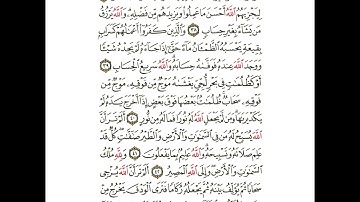 لِيَجْزِيَهُمُ اللَّهُ أَحْسَنَ مَا عَمِلُوا وَيَزِيدَهُم مِّن فَضْلِهِ ۗ وَاللَّهُ يَرْزُقُ
مَن يَشَاءُ بِغَيْرِ حِسَابٍ ٣٨ وَالَّذِينَ كَفَرُوا أَعْمَالُهُمْ كَسَرَابٍ
بِقِيعَةٍ يَحْسَبُهُ الظَّمْآنُ مَاءً حَتَّىٰ إِذَا جَاءَهُ لَمْ يَجِدْهُ شَيْئًا
وَوَجَدَ اللَّهَ عِندَهُ فَوَفَّاهُ حِسَابَهُ ۗ وَاللَّهُ سَرِيعُ الْحِسَابِ ٣٩
أَوْ كَظُلُمَاتٍ فِي بَحْرٍ لُّجِّيٍّ يَغْشَاهُ مَوْجٌ مِّن فَوْقِهِ مَوْجٌ مِّن
فَوْقِهِ سَحَابٌ ۚ ظُلُمَاتٌ بَعْضُهَا فَوْقَ بَعْضٍ إِذَا أَخْرَجَ يَدَهُ لَمْ
يَكَدْ يَرَاهَا ۗ وَمَن لَّمْ يَجْعَلِ اللَّهُ لَهُ نُورًا فَمَا لَهُ مِن نُّورٍ ٤٠ أَلَمْ تَرَ أَنَّ
اللَّهَ يُسَبِّحُ لَهُ مَن فِي السَّمَاوَاتِ وَالْأَرْضِ وَالطَّيْرُ صَافَّاتٍ ۖ كُلٌّ قَدْ
عَلِمَ صَلَاتَهُ وَتَسْبِيحَهُ ۗ وَاللَّهُ عَلِيمٌ بِمَا يَفْعَلُونَ ٤١ وَلِلَّهِ مُلْكُ
السَّمَاوَاتِ وَالْأَرْضِ ۖ وَإِلَى اللَّهِ الْمَصِيرُ ٤٢ أَلَمْ تَرَ أَنَّ اللَّهَ يُزْجِي
سَحَابًا ثُمَّ يُؤَلِّفُ بَيْنَهُ ثُمَّ يَجْعَلُهُ رُكَامًا فَتَرَى الْوَدْقَ يَخْرُجُ مِنْ